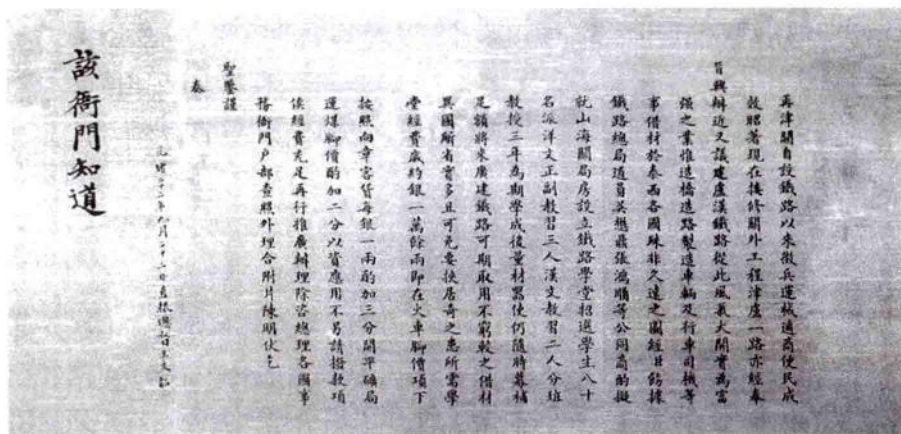 再津關自設鐵路以來徵兵運械通商便民成
效昭著現在接修關外工程津盧一路亦經奉
旨興辦近又議建盧漢鐵路從此風氣大開實為富
強之業惟造橋造路製造車輛及行車司機等
事借材於泰西各國殊非久遠之圖經臣飭據
鐵路總局道員吳懋鼎張鴻順等公同商酌擬
就山海關局房設立鐵路學堂招選學生八十
名派洋文正副教習三人漢文教習二人分班
教授三年為期學成後量材器使仍隨時募補
足額將來廣建鐵路可期取用不窮較之借材
異國所省實多且可免要挾居奇之患所需學
堂經費歲約銀一萬餘兩即在火車腳價項下
按照向章客貨每銀一兩酌加三分開平礦局
運煤腳價酌加二分以資應用不另請撥款項
俟經費充足再行推廣辦理除咨總理各國事
務衙門戶部查照外理合附片陳明伏乞
聖鑒謹
奏
光緒二十二年 月二十 日直隸總督王文韶
該衙門知道